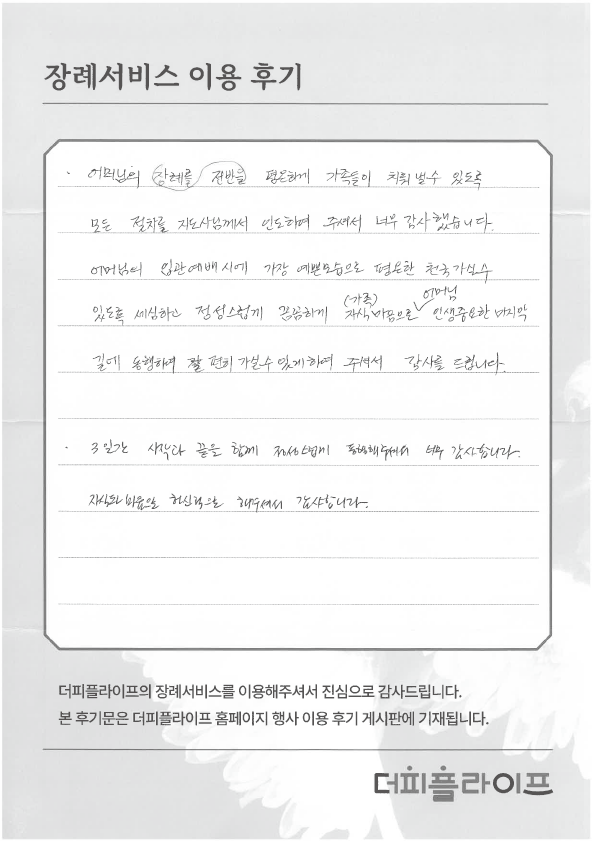 장례서비스 이용 후기
· 어머님의 장례를 전반을 평온하게 가족들이 치뤄낼수 있도록
모든 절차를 지도사님께서 인도하여 주셔서 너무 감사했습니다.
어머님의 입관예배시에 가장 예쁜모습으로 평온한 천국가실수
(가족) 어머님
있도록 세심하고 정성스럽게 꼼꼼하게 자식마음으로 ✓ 인생중요한 마지막
길에 동행하여 잘 편히 가실수 있게하여 주셔서 감사를 드립니다.
· 3일간 시작과 끝을 함께 정성스럽게 동행해주셔서 너무 감사합니다.
자식된 마음으로 헌신적으로 해주셔서 감사합니다.
더피플라이프의 장례서비스를 이용해주셔서 진심으로 감사드립니다.
본 후기문은 더피플라이프 홈페이지 행사 이용 후기 게시판에 기재됩니다.
더피플라이프